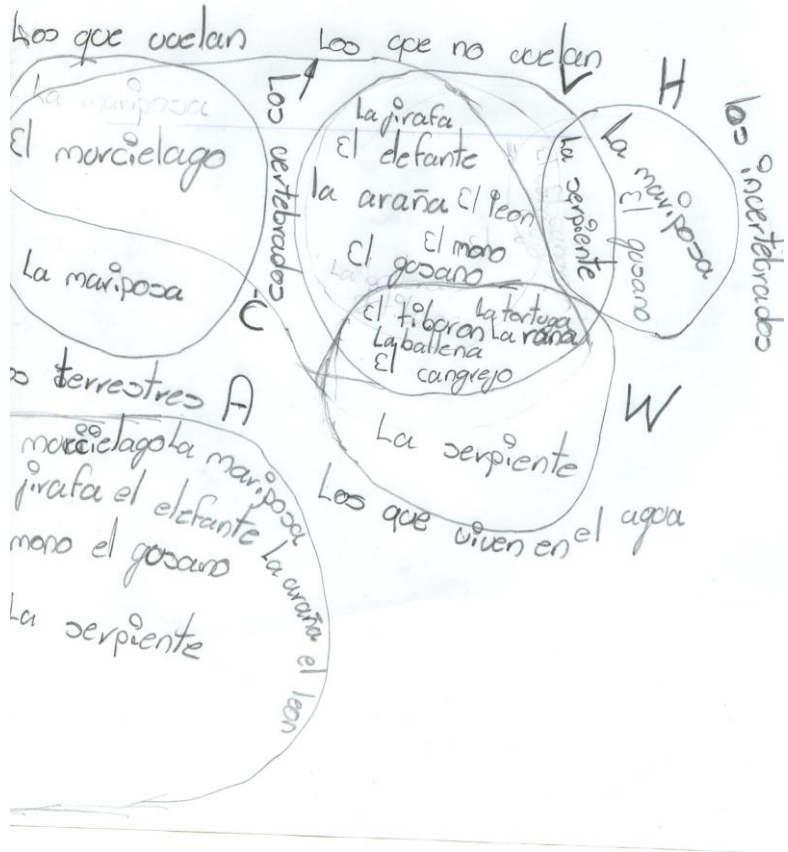 Los que vuelan
Los que no vuelan
V
H
Los vertebrados
los invertebrados
La mariposa
El morcielago
La mariposa
C
La jirafa
El elefante
la araña El leon
El mono
El gosano
La serpiente
La mariposa
El gosano
La tortuga
El tiboron La rana
La ballena
El cangrejo
La serpiente
W
Los que viven en el agua
terrestres A
morcielago La mariposa
jirafa el elefante La araña el leon
mono el gosano
La serpiente